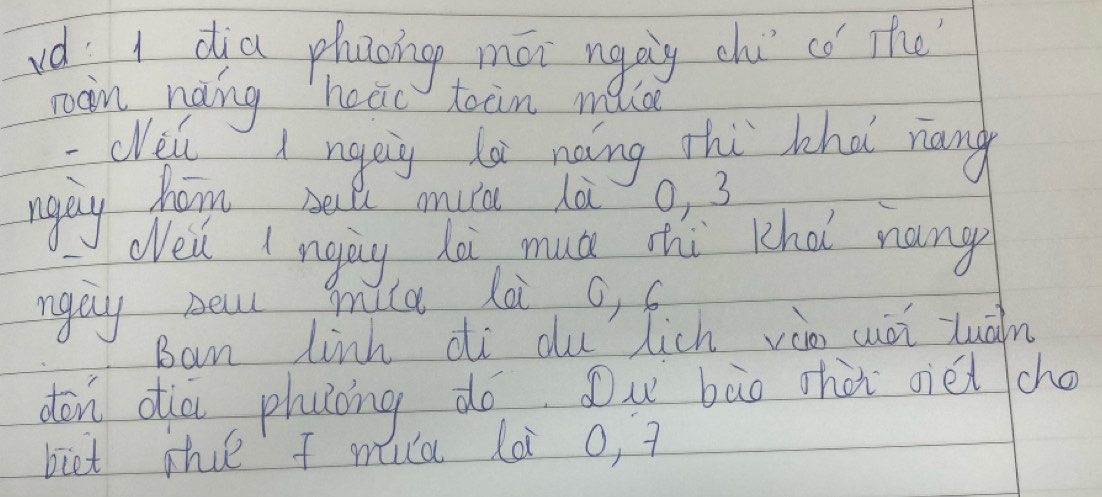 vd: 1 địa phương mỗi ngày chỉ có thể
toàn nắng hoặc toàn mưa
- Nếu 1 ngày là nắng thì khả năng
ngày hôm sau mưa là 0,3
- Nếu 1 ngày là mưa thì khả năng
ngày sau mưa là 0,6
Bạn Linh đi du lịch vào cuối tuần
đến địa phương đó. Dự báo thời tiết cho
biết thứ 7 mưa là 0,7